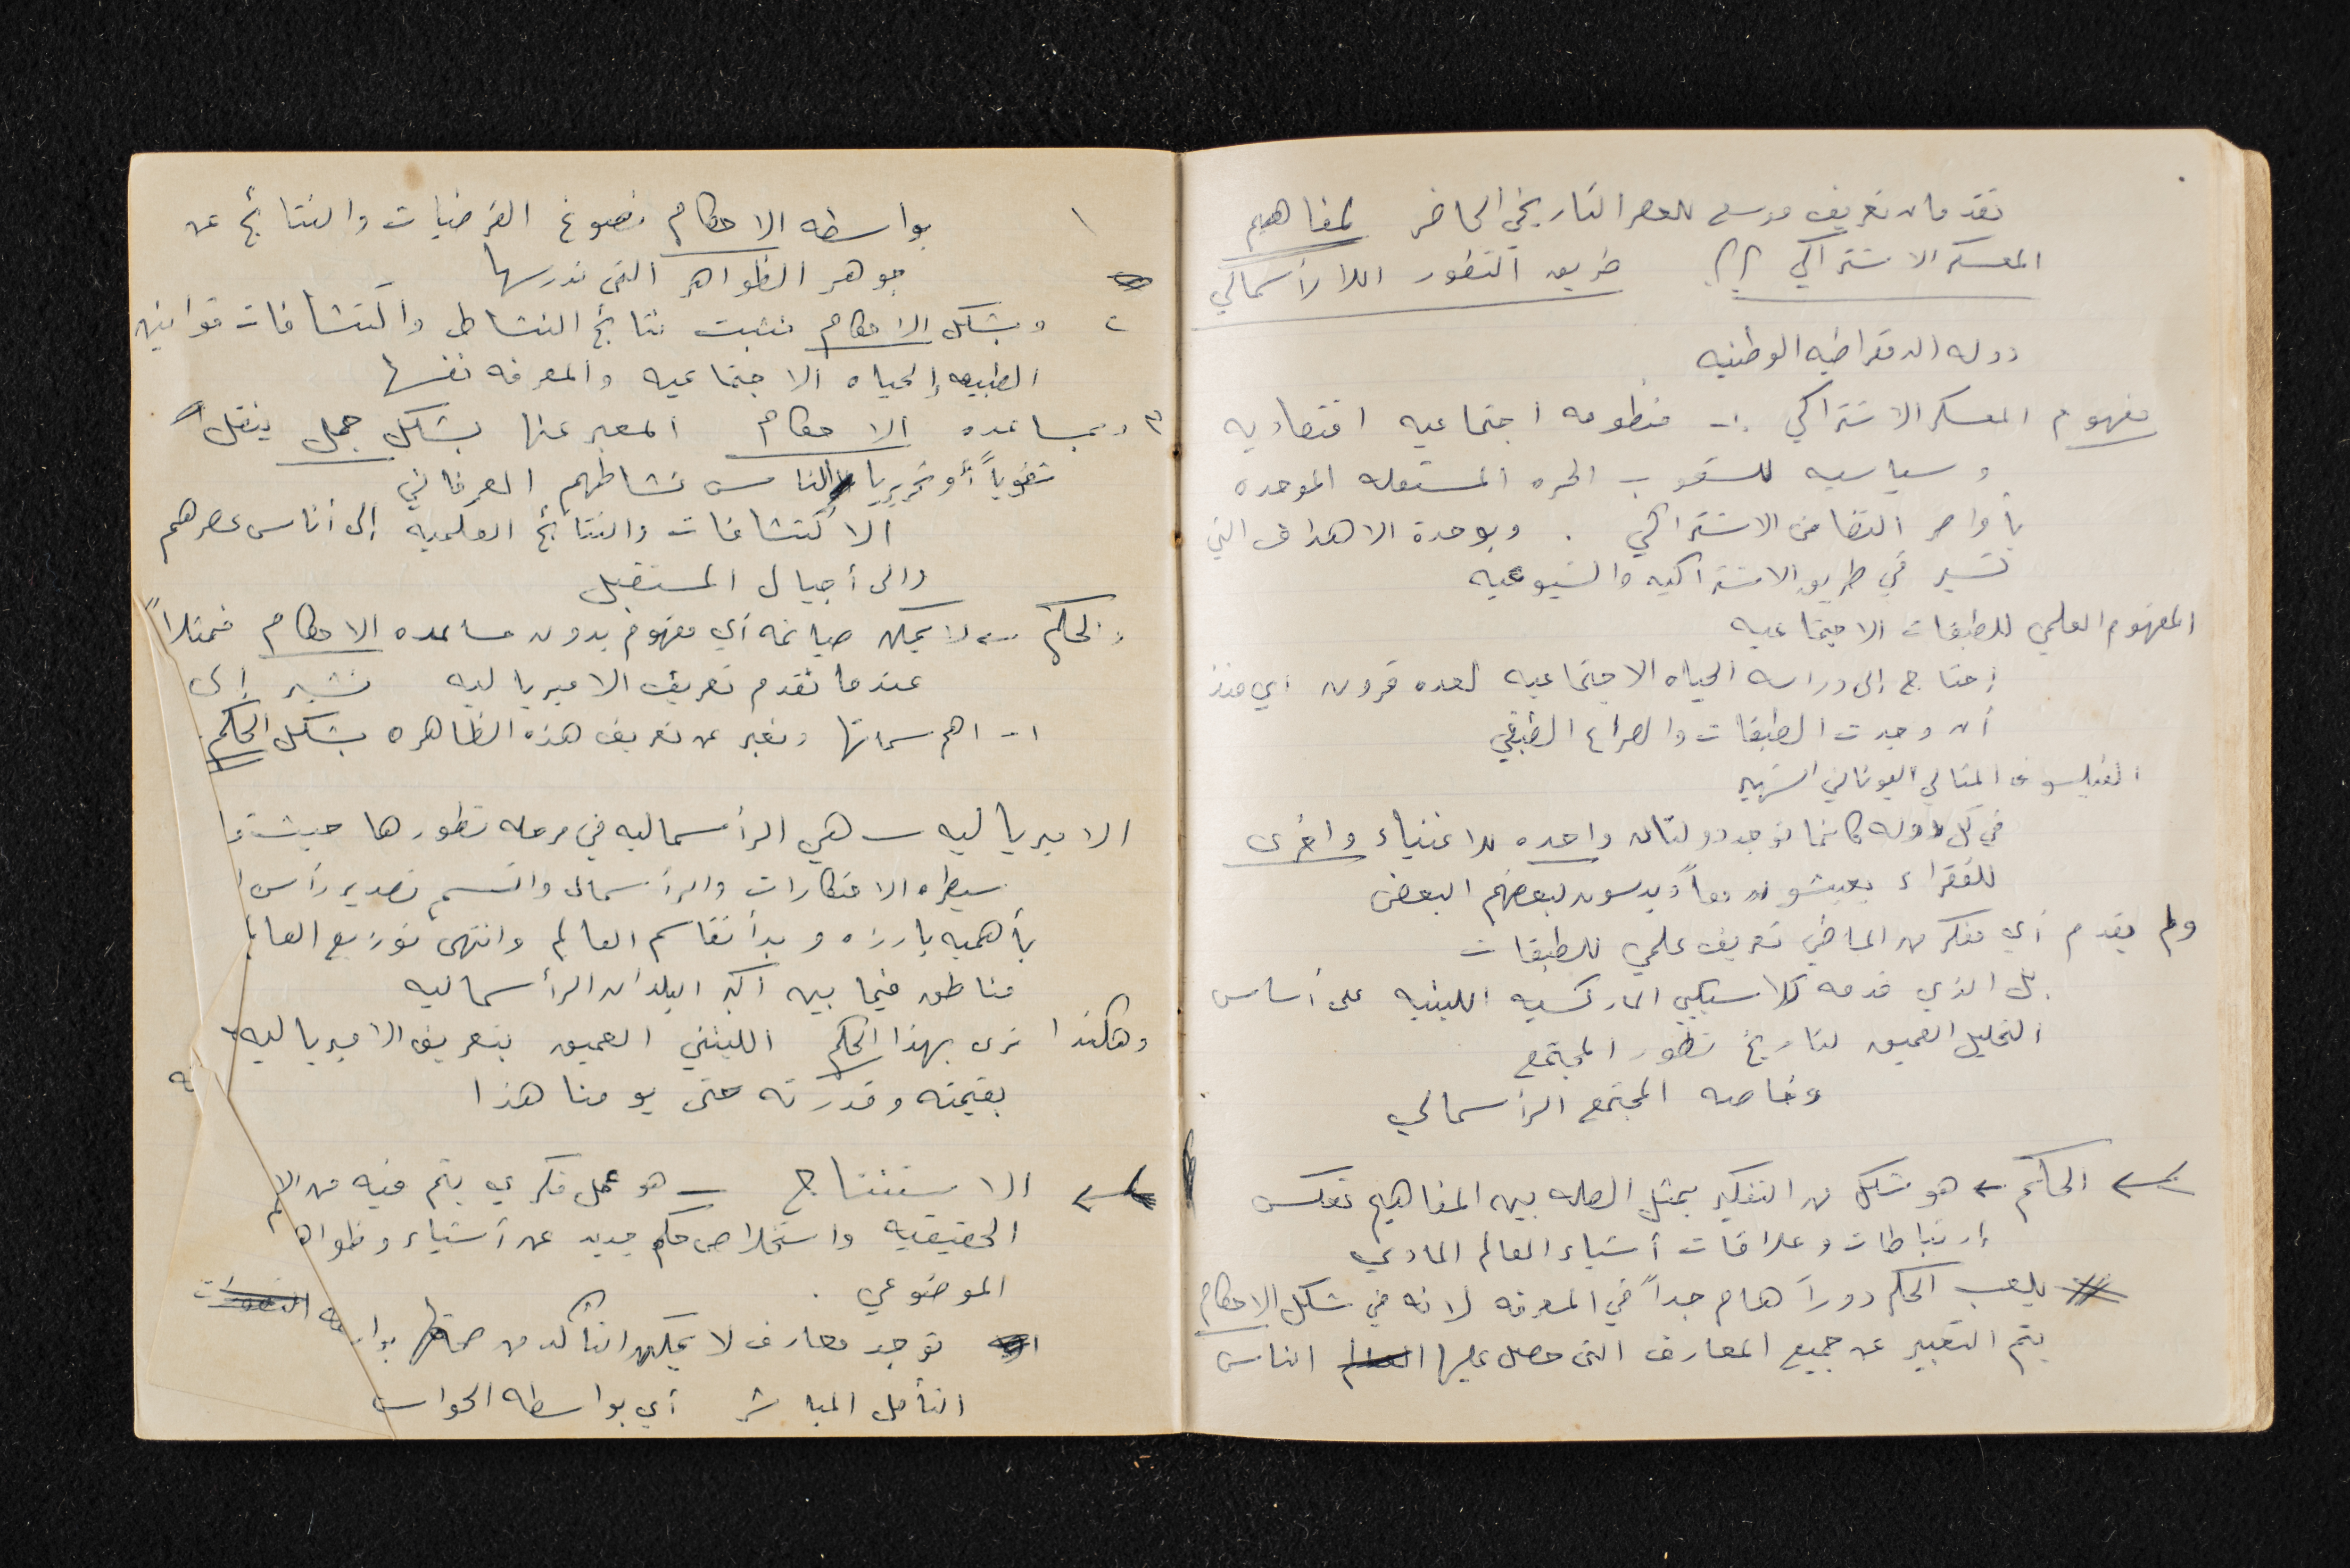 تعريف للعصر التاريخي الحاضر لمفاهيم
المعسكر الاشتراكي ؟؟ طريق التطور اللارأسمالي
دوله الدمقراطيه الوطنيه
مفهوم المعسكر الاشتراكي :- منظومه اجتماعيه اقتصاديه
وسياسيه للشعوب الحره المستقله الموحده
بأواصر التضامن الاشتراكي . وبوحدة الاهداف التي
تسير في طريق الاشتراكيه والشيوعيه
المفهوم العلمي للطبقات الاجتماعيه
إحتاج إلى دراسه الحياه الاجتماعيه لعده قرون أي منذ
أن وجدت الطبقات والصراع الطبقي
الفيلسوف المثالي اليوناني الشهير
في كل دوله كانما توجد دولتان واحده للاغنياء واخرى
للفقراء يعيشون معاً ويدسون لبعضهم البعض
ولم يقدم أي مفكر من الماضي تعريف علمي للطبقات
بل الذي قدمه كلاسيكيي الماركسيه اللينيه على أساس
التحليل العميق لتاريخ تطور المجتمع
وخاصه المجتمع الرأسمالي
الحكم ← هو شكل من التفكير يمثل الصله بين المفاهيم تعكس
إرتباطات وعلاقات أشياء العالم المادي
يلعب الحكم دوراً هام جداً في المعرفه لانه في شكل الاحكام
يتم التعبير عن جميع المعارف التي حصل عليها الناس
١ بواسطه الاحكام نصوغ الفرضيات والنتائج عن
جوهر الظواهر التي ندرسها
٢ وبشكل الاحكام نثبت نتائج النشاط واكتشافات قوانين
الطبيعه والحياه الاجتماعيه والمعرفه نفسها
٣ وبمساعده الاحكام المعبر عنها بشكل جمل ينقل
شفوياً أو تحريريا الناس نشاطهم العرفاني
الاكتشافات والنتائج العلميه إلى أناس عصرهم
والى أجيال المستقبل
والحكم - لا يمكن صياغه أي مفهوم بدون مساعده الاحكام فمثلاً
عندما نقدم تعريف الامبرياليه نشير إلى
١- اهم سماتها ونعبر عن تعريف هذه الظاهره بشكل الحكم
الامبرياليه - هي الرأسماليه في مرحله تطورها حيث
سيطره الاحتكارات والرأسمال واتسم تصدير رأس
بأهميه بارزه وبدأ تقاسم العالم وانتهى توزيع
مناطق فيما بين اكبر البلدان الرأسماليه
وهكذا نرى بهذا الحكم اللينيني العميق بتعريف الامبرياليه
بقيمته وقدرته حتى يومنا هذا
الاستنتاج - هو عمل فكري يتم فيه من
الحقيقيه واستخلاص حكم جديد عن أشياء
الموضوعي .
توجد معارف لا يمكن التأكد من صحتها
التأمل المباشر أي بواسطه الحواس